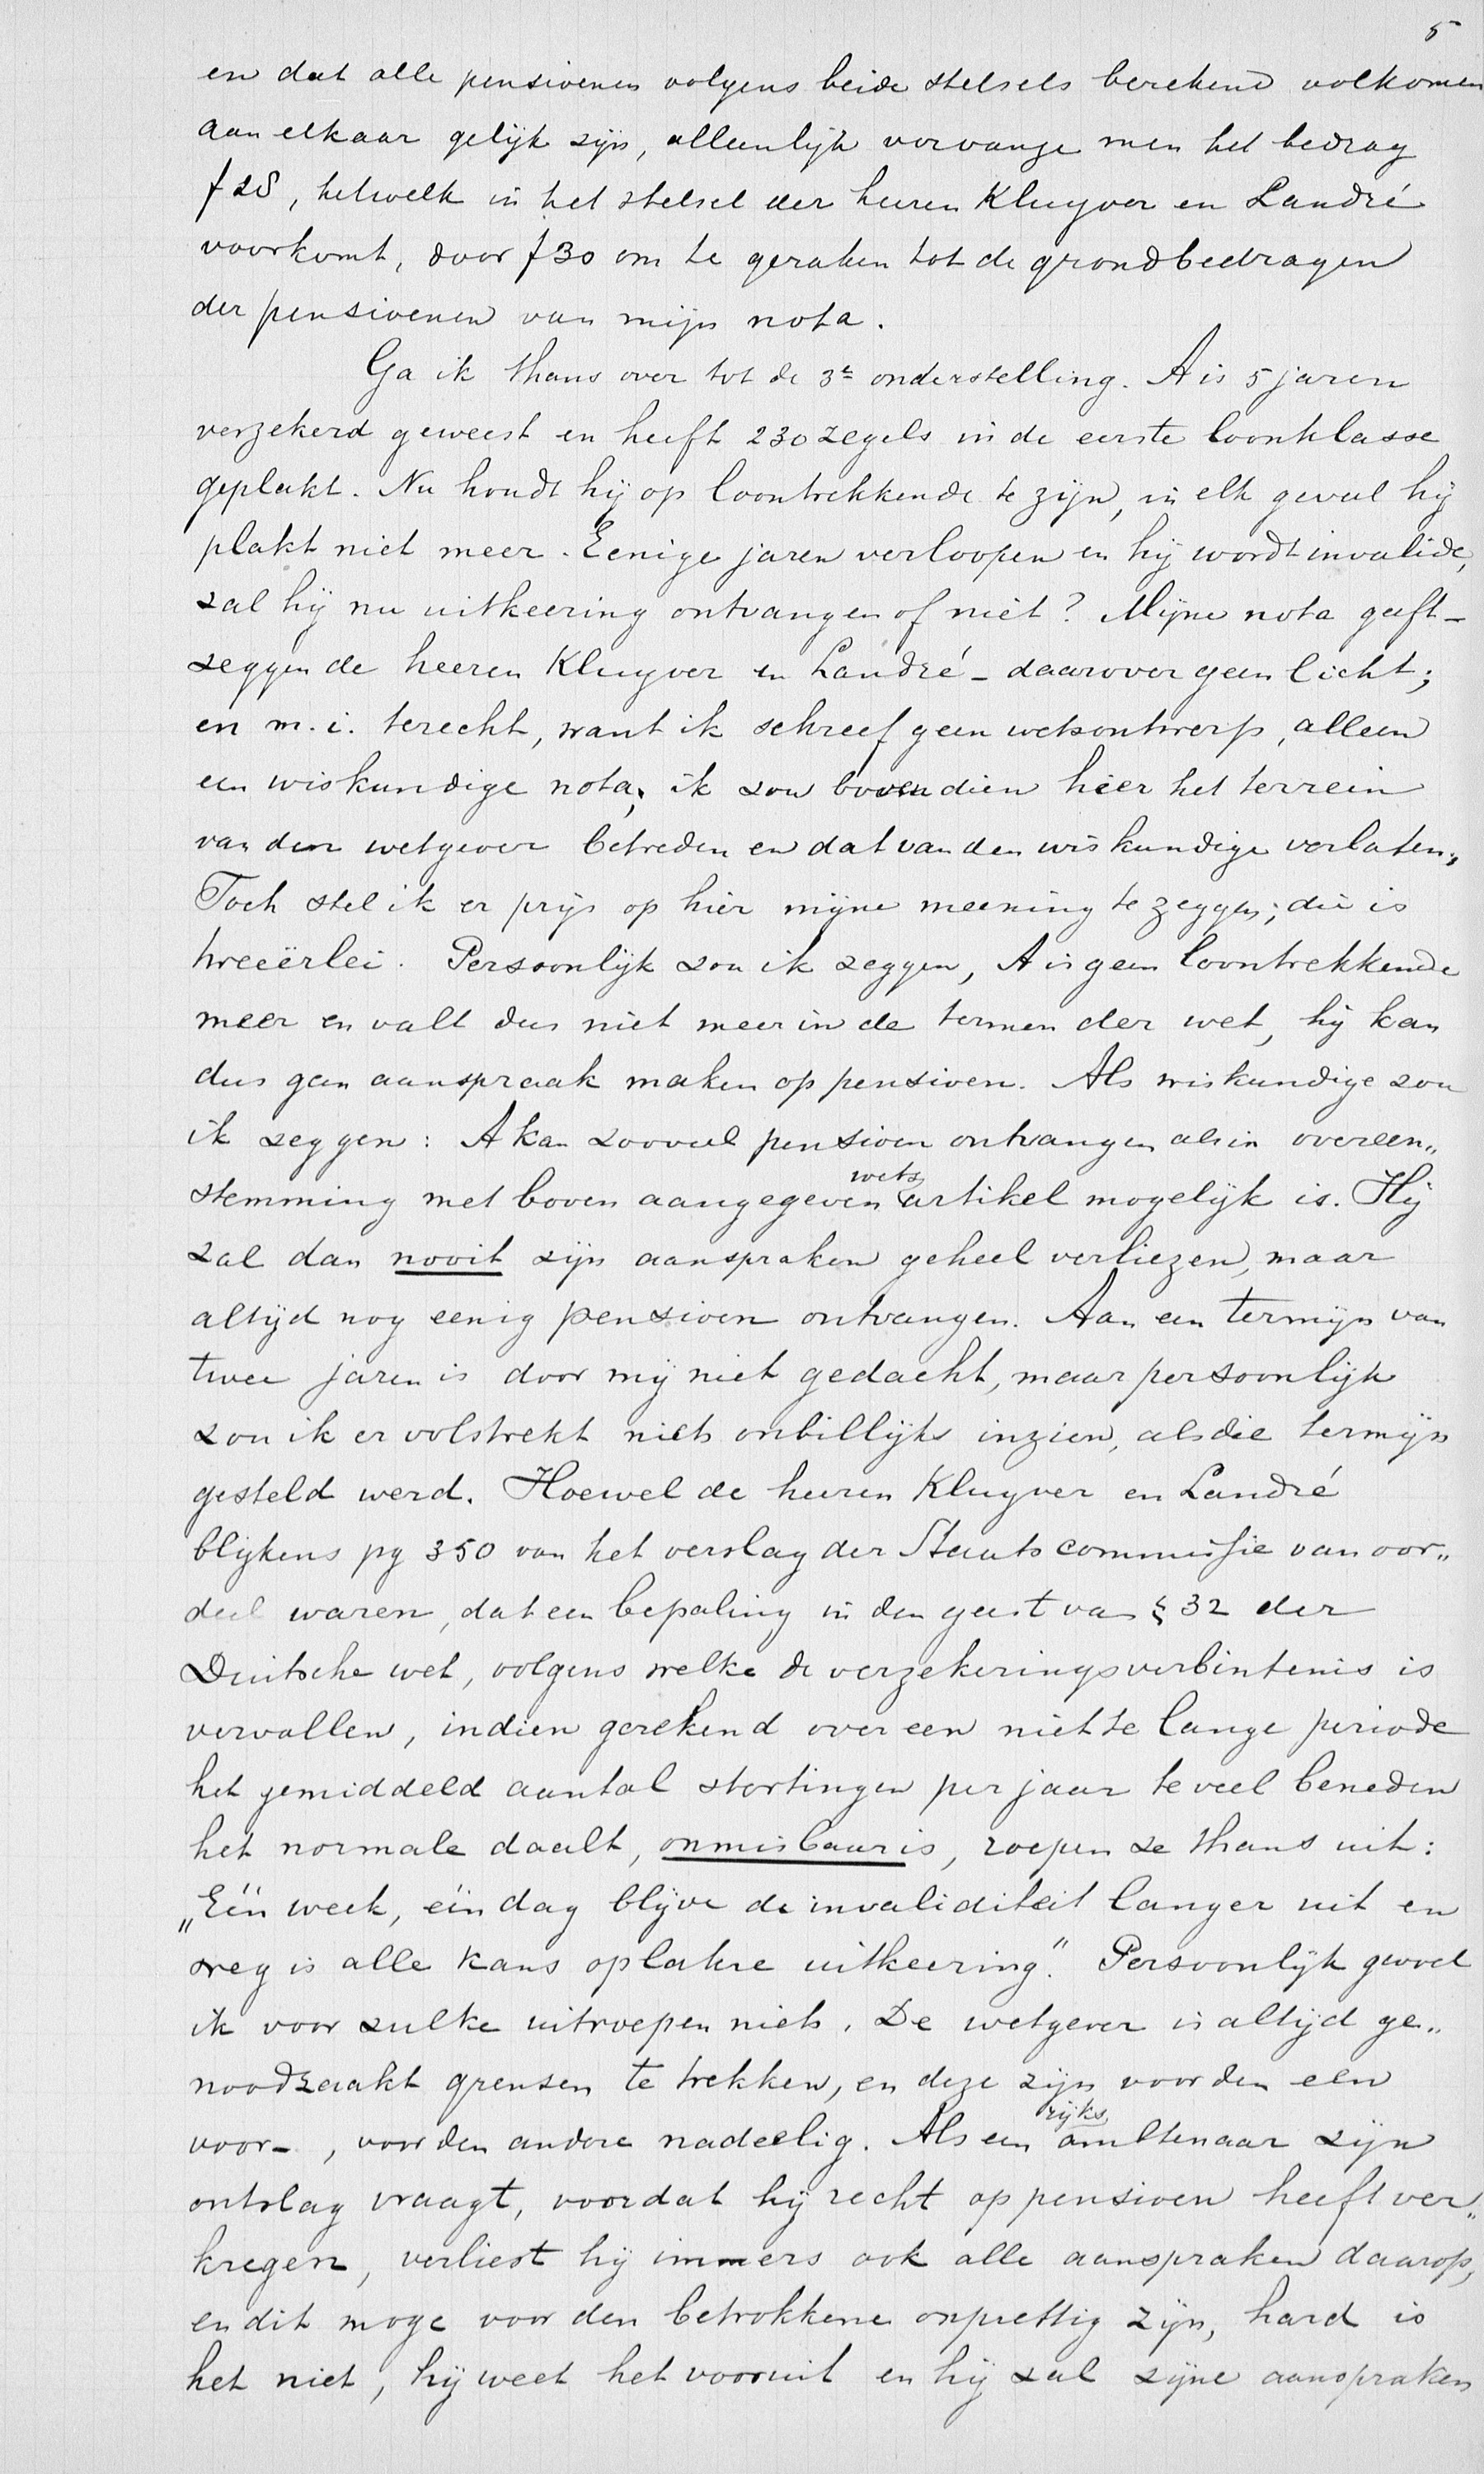 5
en dat alle pensioenen volgens beide stelsels berekend volkomen
aan elkaar gelijk zijn, alleenlijk vervange men het bedrag
f 28, hetwelk in het stelsel der heeren Kluyver en Landré
voorkomt, door f 30 om te geraken tot de grondbedragen
der pensioenen van mijn nota.
Ga ik thans over tot de 3e onderstelling. A is 5 jaren
verzekerd geweest en heeft 230 zegels in de eerste loonklasse
geplakt. Nu houdt hij op loontrekkende te zijn, in elk geval hij
plakt niet meer. Eenige jaren verloopen en hij wordt invalide,
zal hij nu uitkeering ontvangen of niet? Mijne nota geeft –
zeggen de heeren Kluyver en Landré – daarover geen licht;
en m.i. terecht, want ik schreef geen wetsontwerp, alleen
een wiskundige nota, ik zou bovendien hier het terrein
van den wetgever betreden en dat van den wiskundige verlaten.
Toch stel ik er prijs op hier mijne meening te zeggen; die is
tweeërlei. Persoonlijk zou ik zeggen, A is geen loontrekkende
meer en valt dus niet meer in de termen der wet, hij kan
dus geen aanspraak maken op pensioen. Als wiskundige zou
ik zeggen: A kan zooveel pensioen ontvangen als in overeen„
stemming met boven aangegeven wetsartikel mogelijk is. Hij
zal dan nooit zijn aanspraken geheel verliezen, maar
altijd nog eenig pensioen ontvangen. Aan een termijn van
twee jaren is door mij niet gedacht, maar persoonlijk
zou ik er volstrekt niets onbillijks inzien, als die termijn
gesteld werd. Hoewel de heeren Kluyver en Landré
blijkens pg 350 van het verslag der Staatscommissie van oor„
deel waren, dat een bepaling in den geest van § 32 der
Duitsche wet, volgens welke de verzekeringsverbintenis is
vervallen, indien gerekend over een niet te lange periode
het gemiddeld aantal stortingen per jaar te veel beneden
het normale daalt, onmisbaar is, roepen ze thans uit:
„Eén week, één dag blijve de invaliditeit langer uit en
weg is alle kans op latere uitkeering." Persoonlijk gevoel
ik voor zulke uitroepen niets. De wetgever is altijd ge„
noodzaakt grenzen te trekken, en deze zijn voor den een
voor-, voor den andere nadeelig. Als een rijksambtenaar zijn
ontslag vraagt, voordat hij recht op pensioen heeft ver„
kregen, verliest hij immers ook alle aanspraken daarop,
en dit moge voor den betrokkene onprettig zijn, hard is
het niet, hij weet het vooruit en hij zal zijne aanspraken